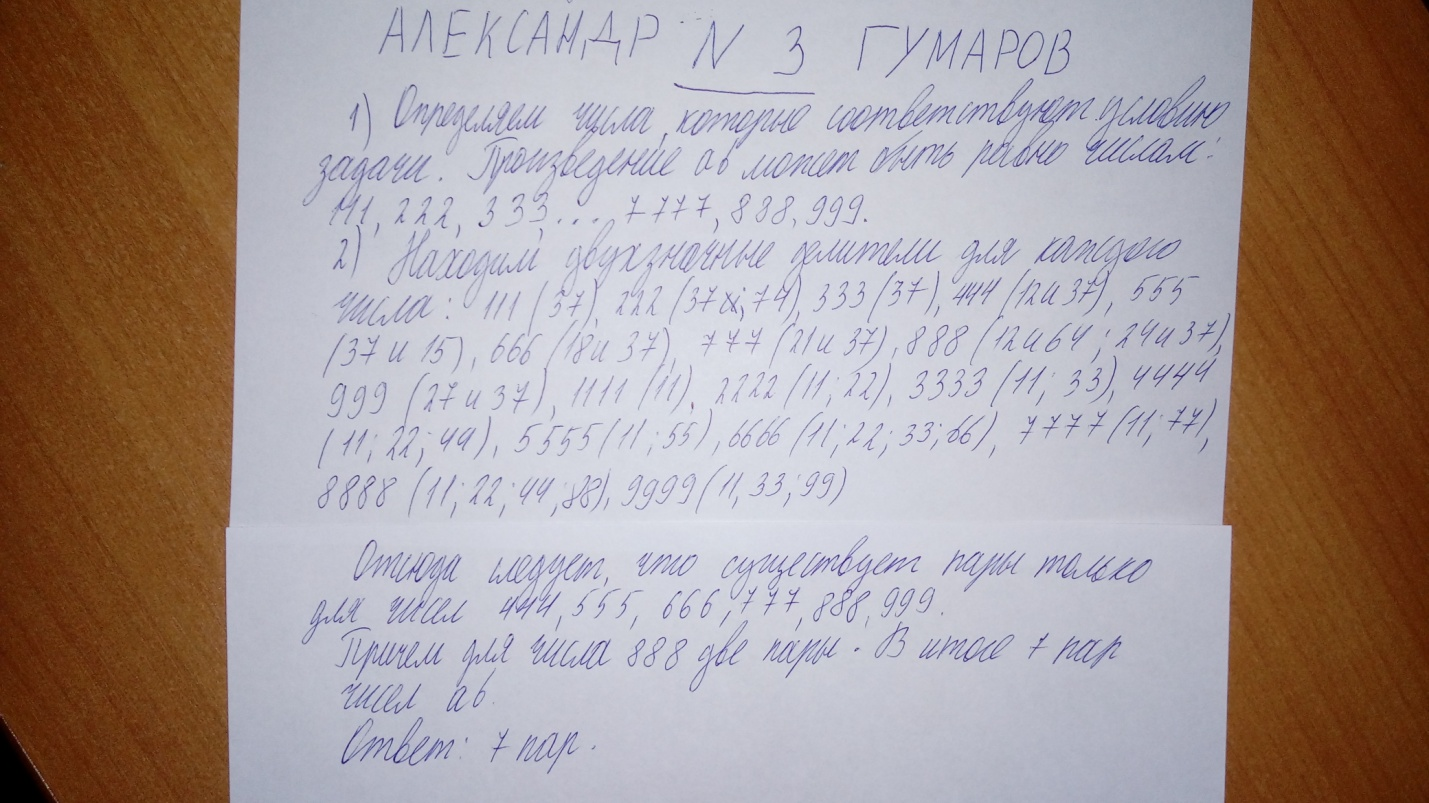 АЛЕКСАНДР N 3 ГУМАРОВ
1) Определяем числа, которые соответствуют условию
задачи. Произведение ab может быть равно числам:
111, 222, 333, ..., 7777, 888, 999.
2) Находим двухзначные делители для каждого
числа: 111 (37), 222 (37 и; 74), 333 (37), 444 (12 и 37), 555
(37 и 15), 666 (18 и 37), 777 (21 и 37), 888 (12 и 64; 24 и 37),
999 (27 и 37), 1111 (11), 2222 (11; 22), 3333 (11; 33), 4444
(11; 22; 44), 5555 (11; 55), 6666 (11; 22; 33; 66), 7777 (11; 77),
8888 (11; 22; 44; 88), 9999 (11, 33; 99)
Отсюда следует, что существует пары только
для чисел 444, 555, 666, 777, 888, 999.
Причем для числа 888 две пары. В итоге 7 пар
чисел ab.
Ответ: 7 пар.